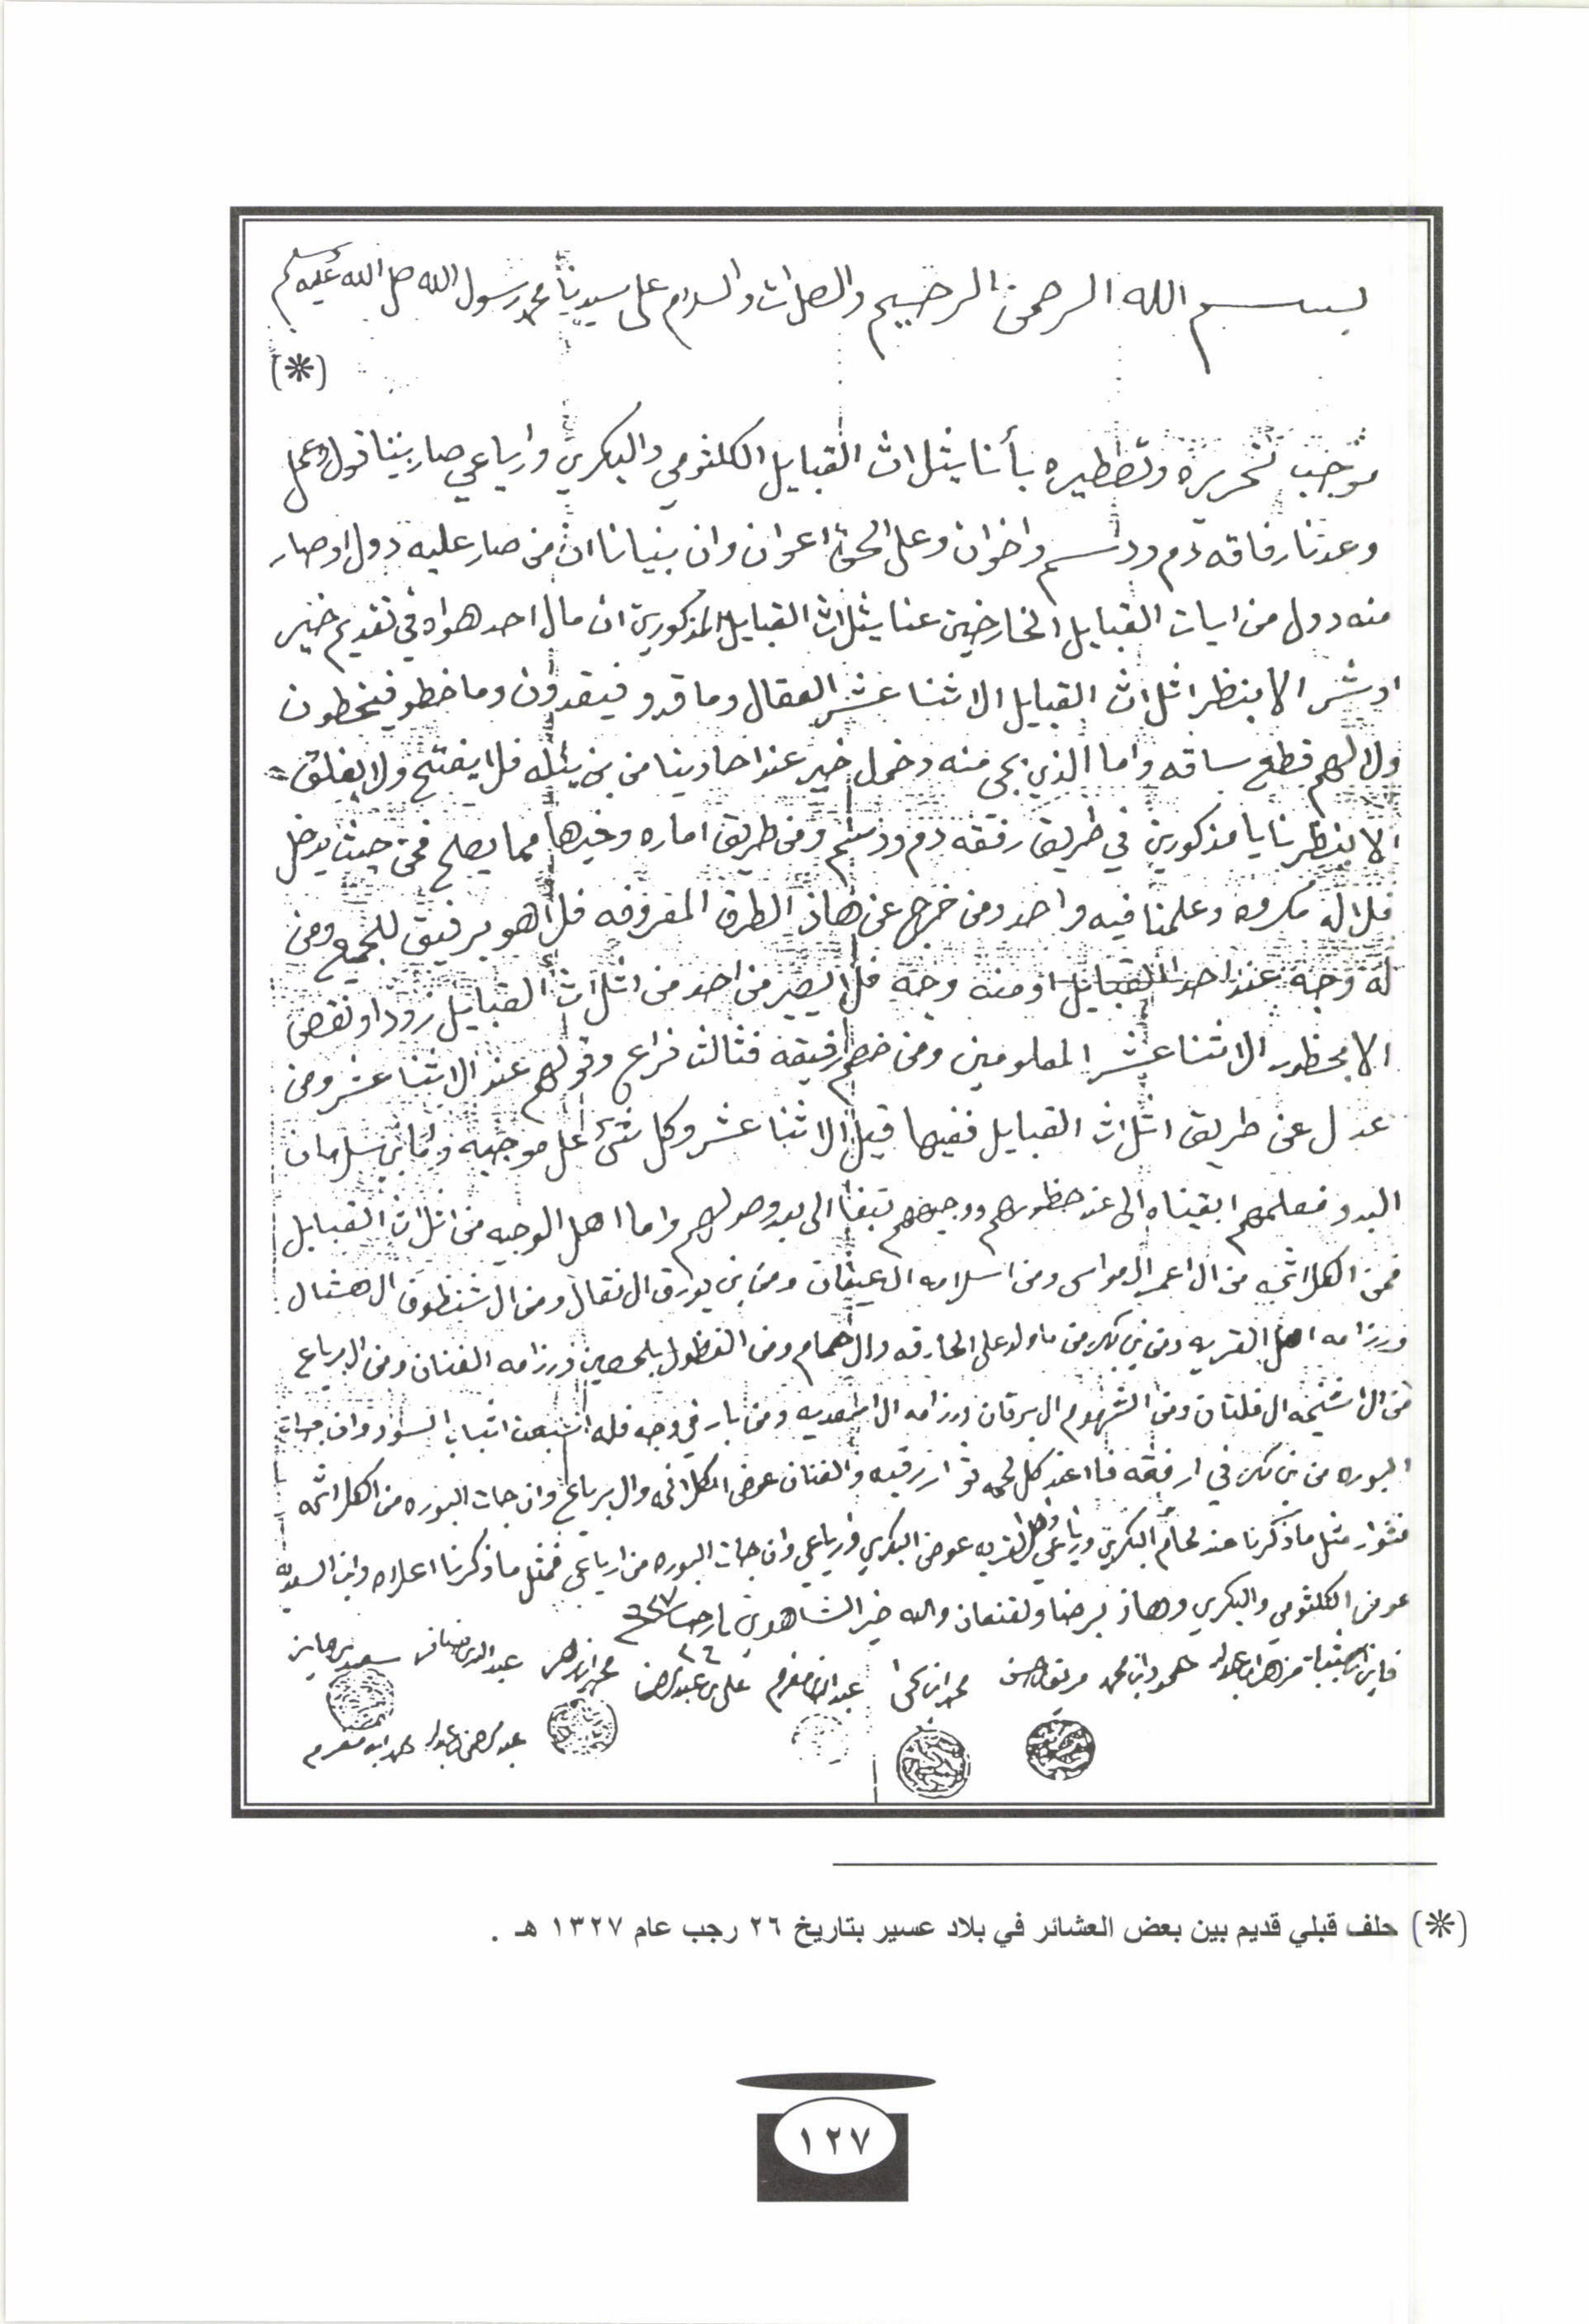 بسم الله الرحمن الرحيم والصلاة والسلام على سيدنا محمد رسول الله صلى الله عليه وسلم
(*)
موجب تحريره وتصطيره بأننا يثلاث القبايل الكلثومي والبكري وارياعي صار بيننا قول وعمل
وعدنا رفاقه دم ودسم واخوان وعلى الحق اعوان وان بنيانا ان من صار عليه دول او صار
منه دول من ايات القبايل الخارجين عنا يثلاث القبايل المذكورين ان مال احد هواه في تقديم خير
او شر الا بنظر اثلاث القبايل الاثنا عشر العقال وما قدو فيقدون وما خطو فيخطون
ولا لهم قطع ساقه واما الذي يجي منه دخمل خير عند احادينا من فلا يفتح ولا يغلق
الا بنظرنا يا مذكورين في طريق رفقه دم ودسم ومن طريق اماره وغيرها مما يصلح فمن حيث يدخل
فلا له مكروه وعلمنا فيه واحد ومن خرج عن هاذ الطرق المعروفه فلا هو برفيق للجميع ومن
له وجه عند احد القبايل او منه وجه فلا يصير من احد من اثلاث القبايل زود او نقص
الا بحظور الاثنا عشر المعلومين ومن خصم رفيقه فثالث فراع وقولهم عند الاثنا عشر ومن
عدل عن طريق اثلاث القبايل ففيها قيل الاثنا عشر وكل شي على موجبه واما بن سلامان
البدو فعلمهم ابقيناه الى عند حظورهم ووجيههم تبقا الى بعد وصولهم واما اهل الوجيه من اثلاث القبايل
فمن الكلاثمه من ال اعمر ال مواس ومن اسلامه ال عيفان ومن بن يورق ال نقال ومن ال شنظوف ال هشال
ورزامه اهل القريه ومن بن بكر من ماولد علي الحارقه وال همام ومن الفظول بلحصين ورزامه الفنان ومن ال برياع
من ال اشيخه ال فلتان ومن الشهوم ال برقان ورزامه ال ومن بار في وجه فله السواد وان جات
البوره من بن بكر في ارفقه فا اعند كل لحمه ثوار رقبه والفنان عوض الكلاثمه وال برياع وان جات البوره من الكلاثمه
فثوار مثل ما ذكرنا عند لحام البكري ورياعي واهل القريه عوض البكري ورياعي وان جات البوره من ارياعي فمثل ما ذكرنا اعلاه
عوض الكلثومي والبكري وهاذ برضا ولقنعان والله خير الشاهدين ٣٢٧
٢٦
محمد ابن يحيى عبدالله ابن مفرم علي بن عبدالرحمن سعيد بن
(*) حلف قبلي قديم بين بعض العشائر في بلاد عسير بتاريخ ٢٦ رجب عام ١٣٢٧ هـ .
١٢٧